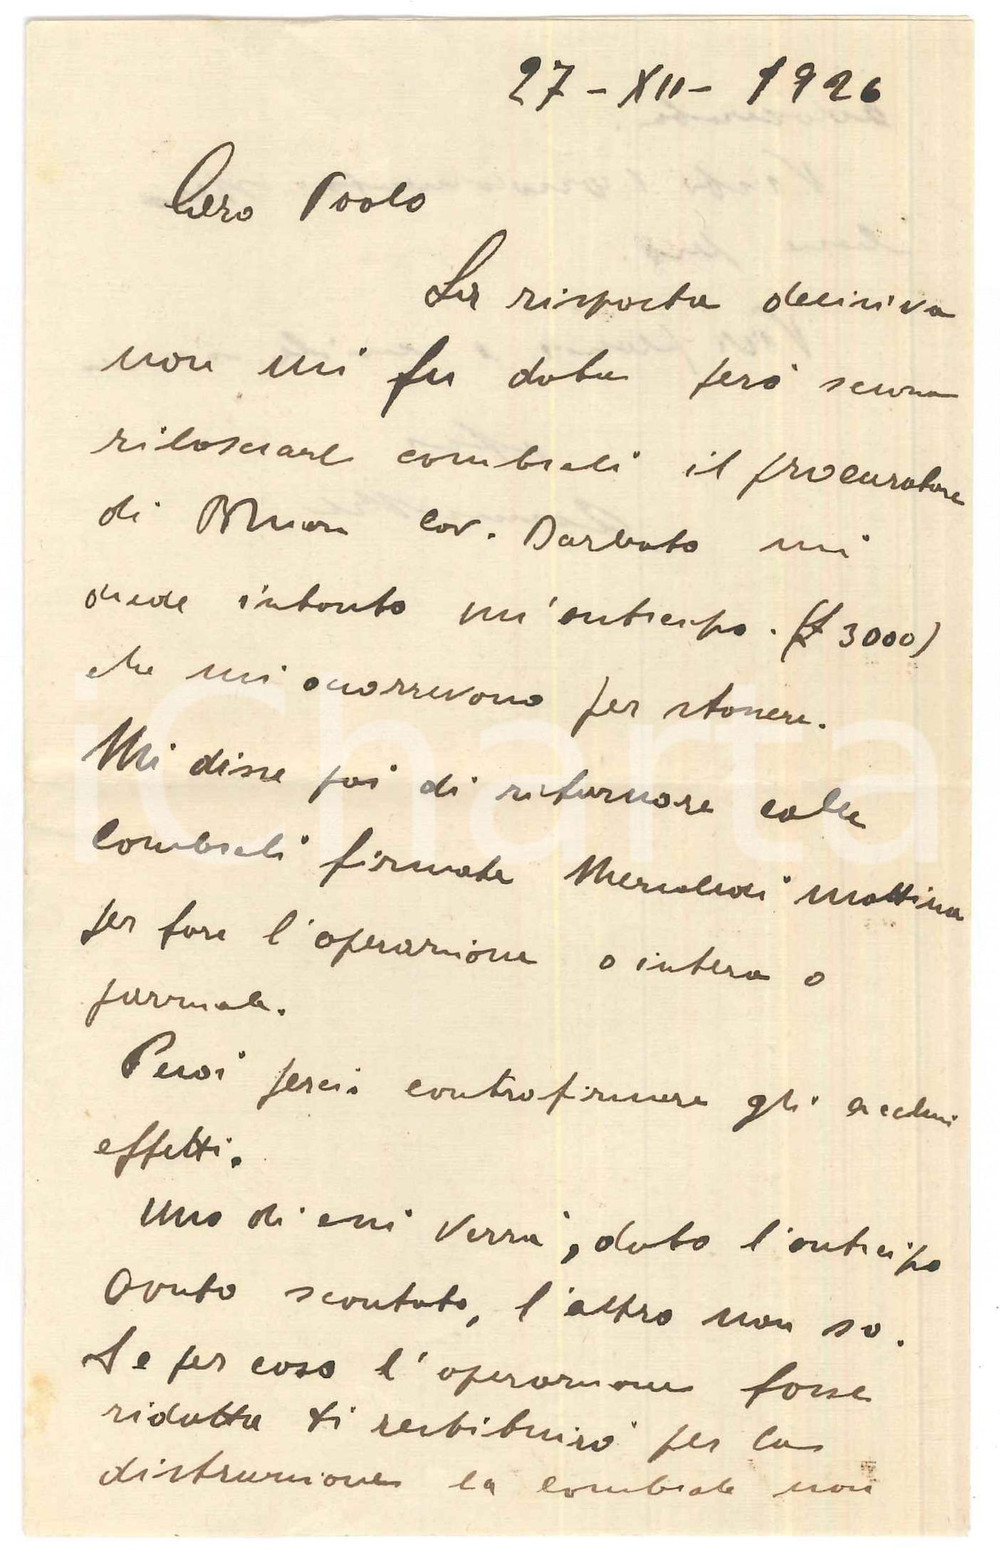 27 - XII - 1926
Caro Paolo
La risposta decisiva
non mi fu data però senza
rilasciare cambiali il procuratore
di Cav. Barbato mi
diede intanto un'anticipo. (£ 3000)
che mi occorrevano per
Mi disse poi di ritornare colle
Cambiali firmate Mercoledì mattina
per fare l'operazione o intera o
parziale.
perciò controfirmare gli acclusi
effetti.
Uno di essi verrà, dato l'anticipo
avuto scontato, l'altro non so.
Se per caso l'operazione fosse
ridotta ti restituirò per la
distruzione la cambiale non
Charta